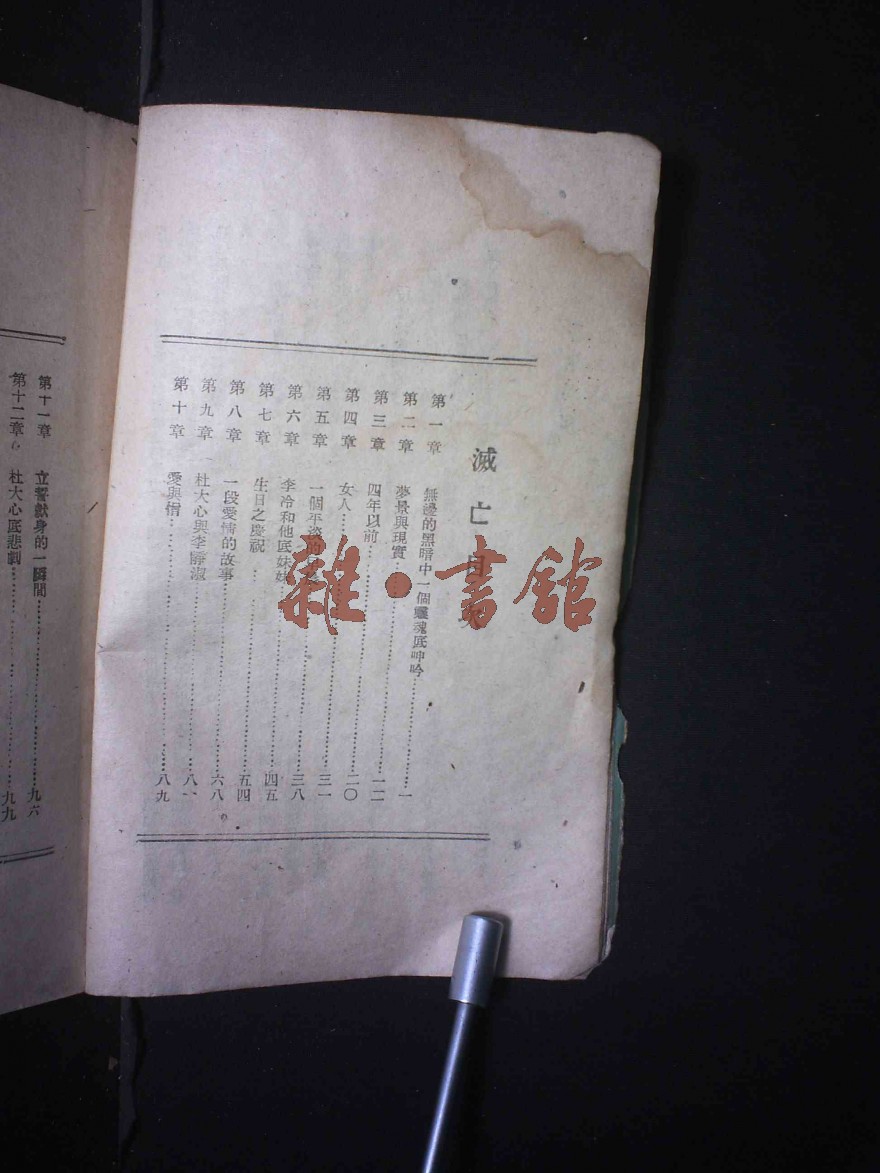 滅亡目次
第一章 無邊的黑暗中一個靈魂底呻吟……一
第二章 夢景與現實……一二
第三章 四年以前……二〇
第四章 女人……三一
第五章 一個平淡的……三八
第六章 李冷和他底妹妹……四五
第七章 生日之慶祝……五四
第八章 一段愛情的故事……六八
第九章 杜大心與李靜淑……八一
第十章 愛與憎……八九
第十一章 立誓獻身的一瞬間……九六
第十二章 杜大心底悲劇……九九
雜·書館